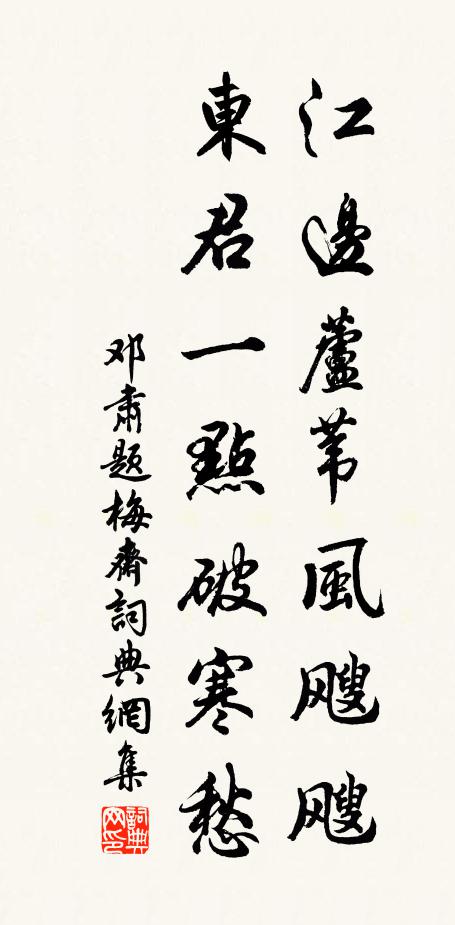 江邊蘆葦風颼颼
東君一點破寒愁
邓肅題梅齋詞典網集
詞典网印